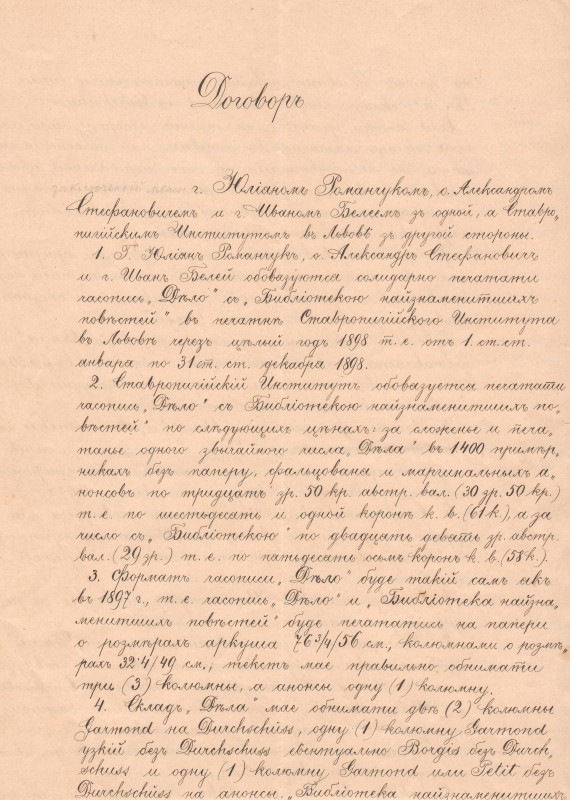 Договоръ
г. Юліаномъ Романчукомъ, о. Александромъ
Стефановичемъ и г. Иваномъ Белеемъ зъ одной, а Ставро-
пигійскимъ Институтомъ въ Львовѣ зъ другой стороны.
1. Г. Юліян Романчукъ, о. Александръ Стефановичъ
и г. Иванъ Белей обовязуются солидарно печатати
часопись „Дѣло" съ „Библіотекою найзнаменитшихъ
повѣстей" въ печатнѣ Ставропигійского Института
въ Львовѣ черезъ цѣлый годъ 1898 т. е. отъ 1. ст. ст.
января по 31 ст. ст. декабря 1898.
2. Ставропигійскій Институтъ обовязуется печатати
часопись „Дѣло" съ Библіотекою найзнаменитшихъ по-
вѣстей" по слѣдующихъ цѣнахъ: за сложенье и печа-
танье одного звычайного числа „Дѣла" въ 1400 примѣр-
никахъ безъ паперу, фальцованя и маргинальныхъ а-
нонсовъ по тридцать зр. 50 кр. австр. вал. (30 зр. 50 кр.)
т. е. по шестьдесять и одной коронѣ к. в. (61 к.), а за
число съ „Библіотекою" по двадцать девять зр. австр.
вал. (29 зр.) т. е. по пятьдесять осьмъ коронъ к. в. (58 к.).
3. Форматъ часописи „Дѣло" буде такій самъ якъ
въ 1897 г., т. е. часопись „Дѣло" и „Библіотека найзна-
менитшихъ повѣстей" буде печататись на папери
о розмѣрахъ аркуша 76 3/4/56 см., колюмнами о розмѣ-
рахъ 32·4/49 см.; текстъ мае правильно обнимати
три (3) колюмны, а анонсы одну (1) колюмну.
4. Складъ „Дѣла" мае обнимати двѣ (2) колюмны
Garmond на Durchschuss, одну (1) колюмну Garmond
узкій безъ Durchschuss евентуально Borgis безъ Durch-
schuss и одну (1) колюмну Garmond или Petit безъ
Durchschuss на анонсы. „Библіотека найзнаменитшихъ